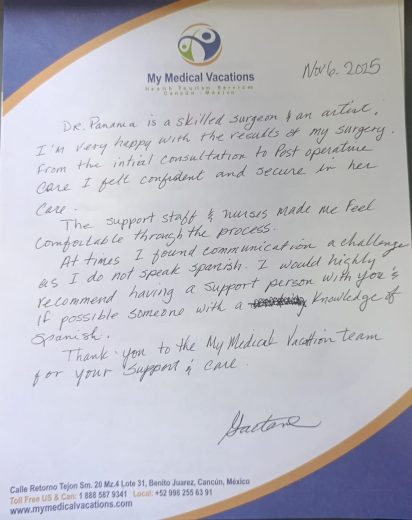 My Medical Vacations
Health Tourism Services
Cancún - México
Nov 6. 2025
Dr. Panama is a skilled surgeon & an artist.
I'm very happy with the results of my surgery.
From the intial consultation to Post operature
Care I felt confident and secure in her
Care.
The support staff & nurses made me feel
Comfortable through the process.
At times I found communication a challenge
as I do not speak spanish. I would highly
recommend having a support person with you &
If possible someone with a knowledge of
Spanish.
Thank-you to the My Medical Vacation team
for your support & care.
Gaetane
Calle Retorno Tejon Sm. 20 Mz.4 Lote 31, Benito Juarez, Cancún, México
Toll Free US & Can: 1 888 587 9341 Local: +52 998 255 63 91
www.mymedicalvacations.com